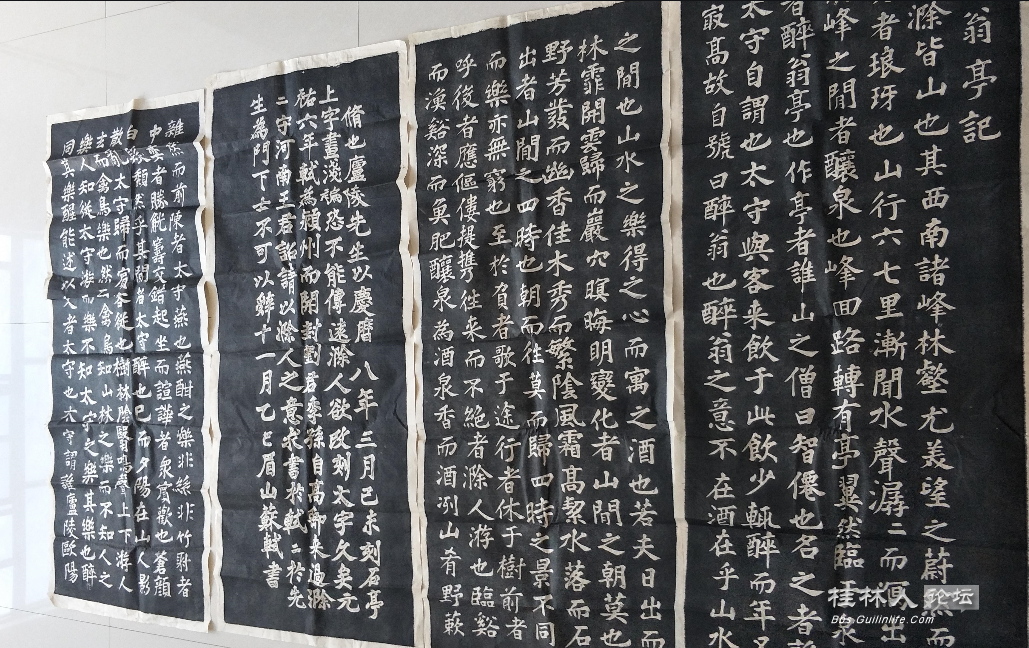 翁亭記
滁皆山也其西南諸峰林壑尤美望之蔚然而
者琅玡也山行六七里漸聞水聲潺二而
峰之間者釀泉也峰回路轉有亭翼然臨于泉
者醉翁亭也作亭者誰山之僧曰智僊也名之者
太守自謂也太守與客来飲于此飲少輒醉而年又
寂髙故自號曰醉翁也醉翁之意不在酒在乎山水
之間也山水之樂得之心而寓之酒也若夫日出而
林霏開雲歸而巖穴暝晦明變化者山間之朝莫也
野芳發而幽香佳木秀而繁陰風霜髙潔水落而石
出者山間之四時也朝而往莫而歸四時之景不同
而樂亦無窮也至於負者歌于途行者休于樹前者
呼後者應傴僂提携往来而不絶者滁人游也臨谿
而漁谿深而魚肥釀泉為酒泉香而酒冽山肴野蔌
雜然而前陳者太守燕也燕酣之樂非絲非竹射者
中弈者勝觥籌交錯起坐而諠譁者衆賔歡也蒼顔
白髮頽然乎其間者太守醉也已而夕陽在山人影
散亂太守歸而賔客從也樹林陰翳鳴聲上下游人
去而禽鳥樂也然而禽鳥知山林之樂而不知人之
樂人知從太守游而樂不知太守之樂其樂也醉
同其樂醒能述以文者太守也太守謂誰廬陵歐陽
脩也廬陵先生以慶曆八年三月己未刻石亭
上字畫淺褊恐不能傳遠滁人欲改刻大字久矣元
祐六年軾為潁州而開封劉君季孫自髙郵来過滁
二守河南王君詔請以滁人之意求書於軾二於先
生為門下士不可以辭十一月乙巳眉山蘇軾書
桂林人论坛
Bbs.Guilinlife.Com